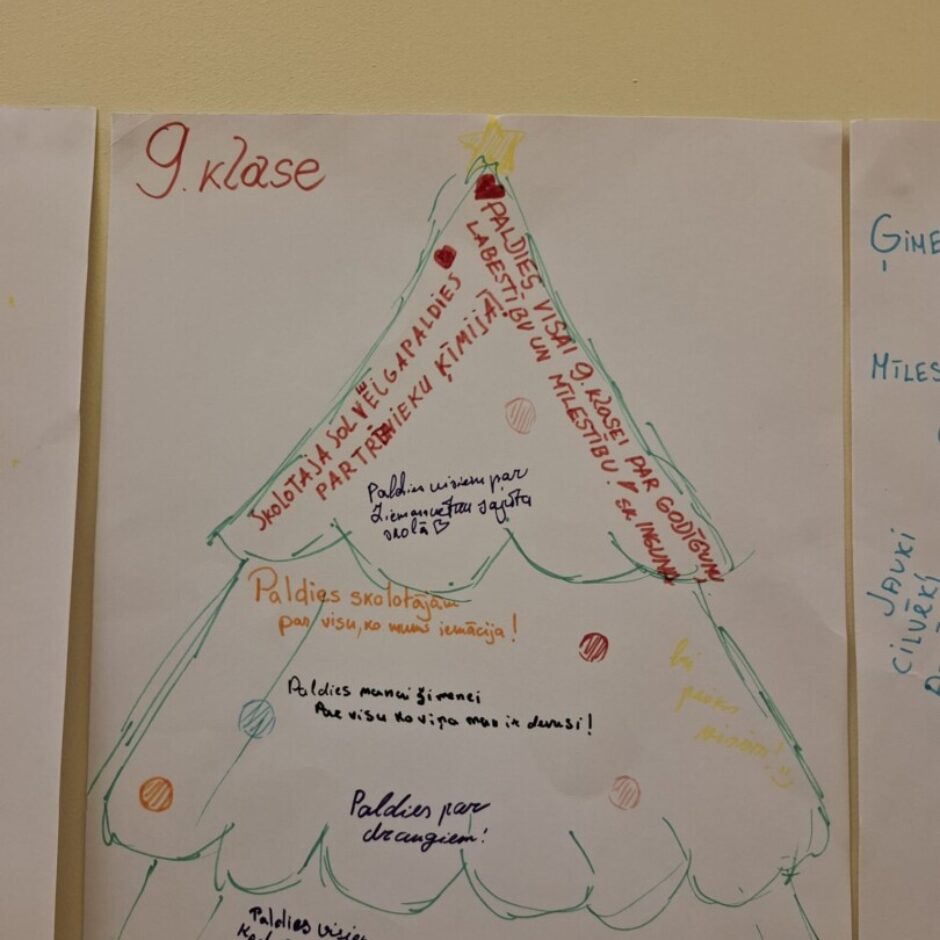 9. klase
SKOLOTĀJA SOLVĒIGA PALDIES
PAR TRĪSVIENĪKU ĶĪMIJĀ!
PALDIES VISAI 9. klasEI PAR GODĪGUMU,
LABESTĪBU UN MĪLESTĪBU! SK. INGUNA
Paldies visiem par
Ziemassvētku sajūta
skolā
Paldies skolotājām
par visu, ko mums iemācīja!
Paldies manai ģimenei
Par visu ko viņa man ir devusi!
Paldies par
draugiem!
Paldies
ĢIME
MĪLES
JAUKI
CILVĒKI